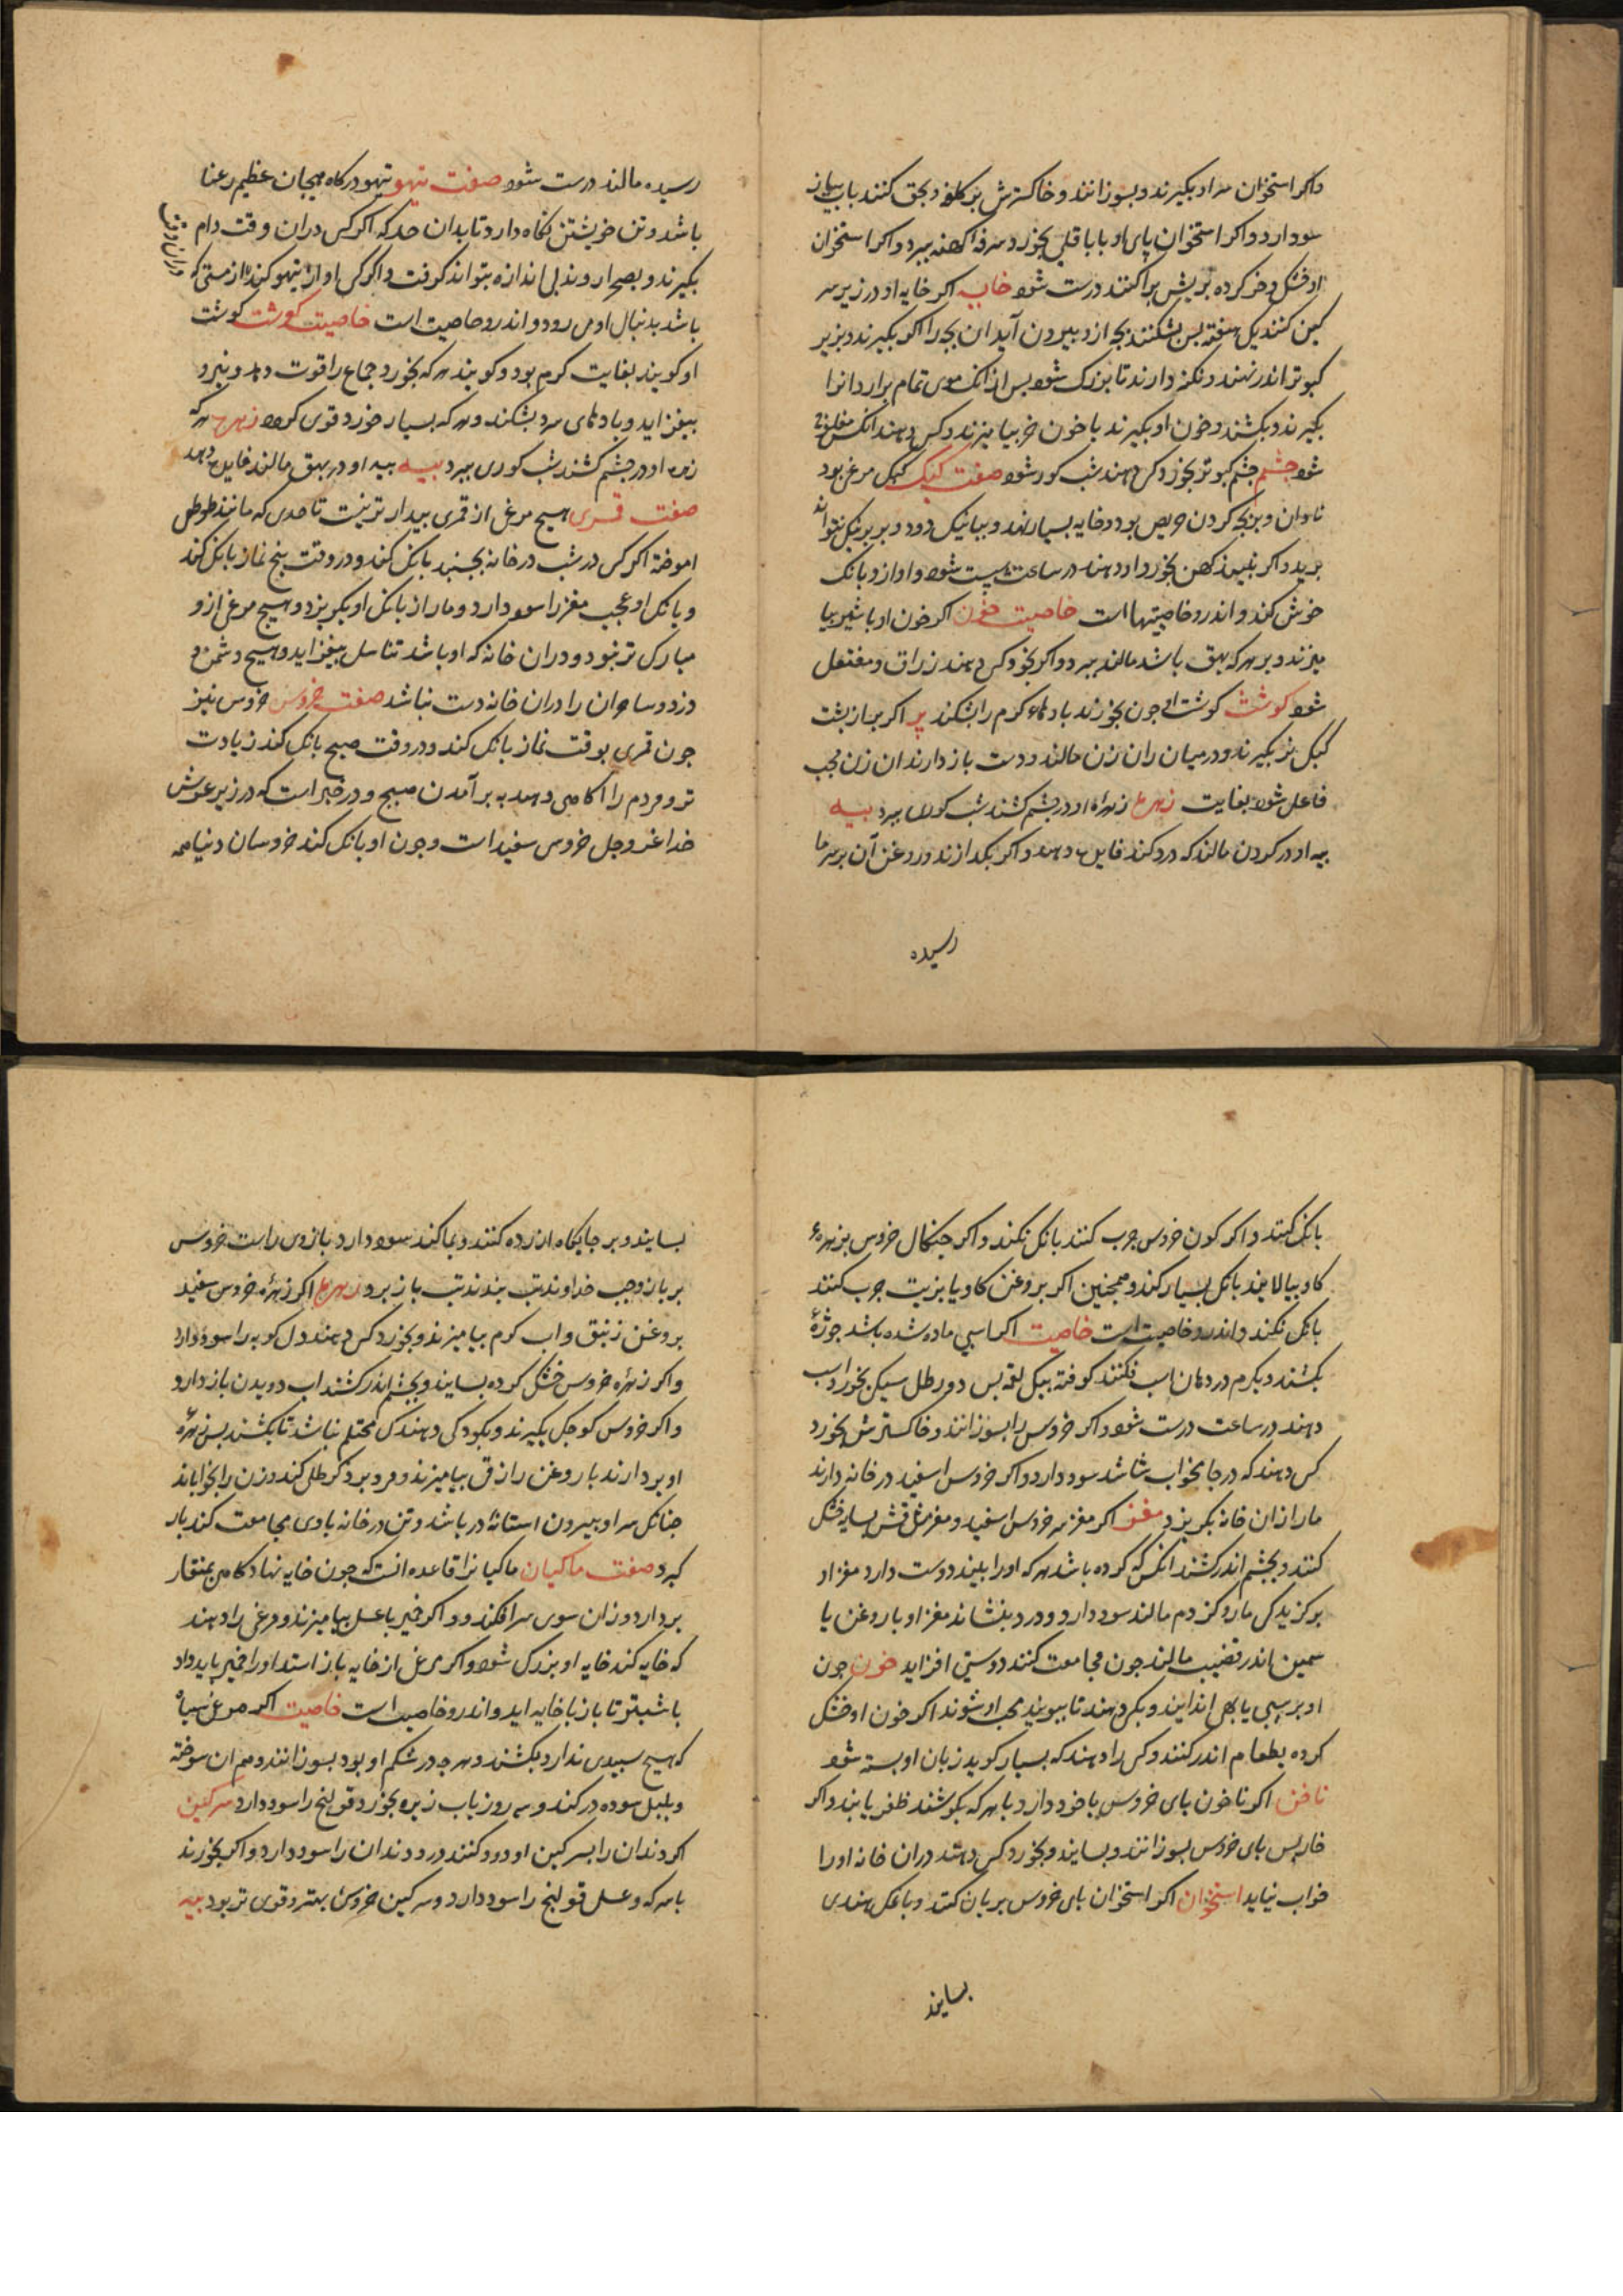 واکر استخوان سر او بکیرند و بسوزانند و خاکسترش بر کلف و بهق کنند با پیاز
سود دارد و اکر استخوان پای او با باقلی بخورد سرفه کهنه ببرد و اکر استخوان
او خشک و خرد کرده بر ریش پراکنند درست شود خایه اکر خایه او در زیر سر
کین کنند یک هفته پس بشکنند بچه ازو بیرون آید ان بچه را اکر بکیرند و بزیر
کبوتر اندر نهند و نکه دارند تا بزرک شود پس از انک موی تمام برارد انرا
بکیرند و بکشند و خون او بکیرند با خون خر بیامیزند و کسی دهند انکس مفلوج
شود چشم چشم کبوتر بخورد کسی دهند شب کور شود صفت کبک کبک مرغی بود
نادان و بر بچه کردن حریص بود و خایه بسیار نهد و بیانیک دود و بر پر نیک نتواند
پرید و اکر پنیر کهن بخورد او دهند در ساعت مست شود و اواز و بانک
خوش کند و اندرو خاصیتها است خاصیت خون اکر خون او با شیر بیا
میزند و بر هر که بهق باشد مالند ببرد و اکر بخورد کسی دهند زراق و مفتعل
شود کوشت کوشت او چون بخورند بادهاء کرم را بشکند پر اکر پر از پشت
کبک نر بکیرند و در میان ران زن مالند و دست باز دارند ان زن محب
فاعل شود بغایت زهره زهره او در چشم کشند شب کوری ببرد پیه
پیه او در کردن مالند که درد کند فایده دهد و اکر بکدازند و روغن آن بر سرما
رسیده
رسیده مالند درست شود صفت تیهو تیهو در کاه هیجان عظیم رعنا
باشد و تن خویشتن نکاه دارد تا بدان حد که اکر کسی دران وقت دام
بکیرند و بصحرا روند بی اندازه بتواند کرفت و اکر کسی اواز تیهو کند از مستی که
دران وقت
باشد بدنبال او می رود و اندرو خاصیت است خاصیت کوشت کوشت
او کویند بغایت کرم بود و کویند هر که بخورد جماع را قوت دهد و نیرو
بیفزاید و بادهای سرد بشکند و هر که بسیار خورد قوی کردد زهره هر که
زهره او در چشم کشند شب کوری ببرد پیه پیه او در بهق مالند فایده دهد
صفت قمری هیچ مرغی از قمری بیدار تر نیست تا حدی که مانند طوطی
اموخته اکر کسی در شب در خانه بجنبد بانک کند و در وقت پنج نماز بانک کند
و بانک او عجب مغز را سود دارد و مار از بانک او بکریزد و هیچ مرغی ازو
مبارک تر نبود و دران خانه که او باشد تناسل بیفزاید و هیچ دشمن و
دزد و ساحران را دران خانه دست نباشد صفت خروس خروس نیز
چون قمری بوقت نماز بانک کند و در وقت صبح بانک کند زیادت
تر و مردم را آکاهی دهد به برآمدن صبح و در خبر است که در زیر عرش
خدا عز و جل خروسی سفید است و چون او بانک کند خروسان دنیا همه
بانک کنند و اکر کون خروس چرب کنند بانک نکند و اکر چنکال خروس بزهره
کاو بیالایند بانک بسیار کند و همچنین اکر بروغن کاو یا بزیت چرب کنند
بانک نکند و اندرو خاصیت است خاصیت اکر اسپی مانده شده باشد جوژه
بکشند و بکرم در دهان اسب فکنند کوفته بیک لقمه پس دو رطل سیکی بخورد اسب
دهند در ساعت درست شود و اکر خروس را بسوزانند و خاکسترش بخورد
کسی دهند که در جامه خواب شاشد سود دارد و اکر خروس اسفید در خانه دارند
مار از ان خانه بکریزد مغز اکر مغز سر خروس اسفید و مغز بسایه خشک
کنند و بچشم اندر کشند انکس که کرده باشد هر که او را بیند دوست دارد مغز او
بر کزیدکی مار و کزدم مالند سود دارد و درد بنشاند مغز او با روغن یا
سمین اندر قضیب مالند چون مجامعت کنند دوستی افزاید خون چون
او بر سیبی یا بهی اندایند و بکسی دهند تا ببوید محب او شوند اکر خون او خشک
کرده بطعام اندر کنند و کسی را دهند که بسیار کوید زبان او بسته شود
ناخن اکر ناخون پای خروس با خود دارد با هر که بکوشند ظفر یابند و اکر
خار پس پای خروس بسوزانند و بسایند و بخورد کسی دهند دران خانه او را
خواب نیاید استخوان اکر استخوان پای خروس بریان کنند و با نمک هندی
بسایند
بسایند و بر جایکاه ازرده کنند و بماکند سود دارد بازوی راست خروس
بر بازو چپ خداوند تب بندند تب باز برد زهره اکر زهره خروس سفید
بروغن زنبق و اب کرم بیامیزند و بخورد کسی دهند دل کوبه را سود دارد
و اکر زهره خروس خشک کرده بسایند و بچشم اندر کشند اب دویدن باز دارد
و اکر خروس کوچک بکیرند و بکودکی دهند که محتلم نباشد تا بکشند پس زهره
او بردارند با روغن رازقی بیامیزند و مرد بر ذکر طلی کند و زن را بخواباند
چنانک سر او بیرون استانه در باشد و تن در خانه با وی مجامعت کند بار
کیرد صفت ماکیان ماکیانرا قاعده انست که چون خایه نهاد کاهی بمنقار
بردارد و زان سوی سرافکند و اکر خمیر با عسل بیامیزند و مرغی را دهند
که خایه کند خایه او بزرک شود و اکر مرغی از خایه باز استد او را خمیر باید داد
با شبتر تا باز با خایه اید و اندرو خاصیت است خاصیت اکر مرغ سیاه
که هیچ سپیدی ندارد بکشند و هرچه در شکم او بود بسوزانند و هم ان سوخته
و پلپل سوده در کند و سه روز باب زیره بخورد قولنج را سود دارد سرکین
اکر دندان را بسرکین او دود کنند درد دندان را سود دارد و اکر بخورند
با سرکه و عسل قولنج را سود دارد و سرکین خروس بهتر و قوی تر بود پیه